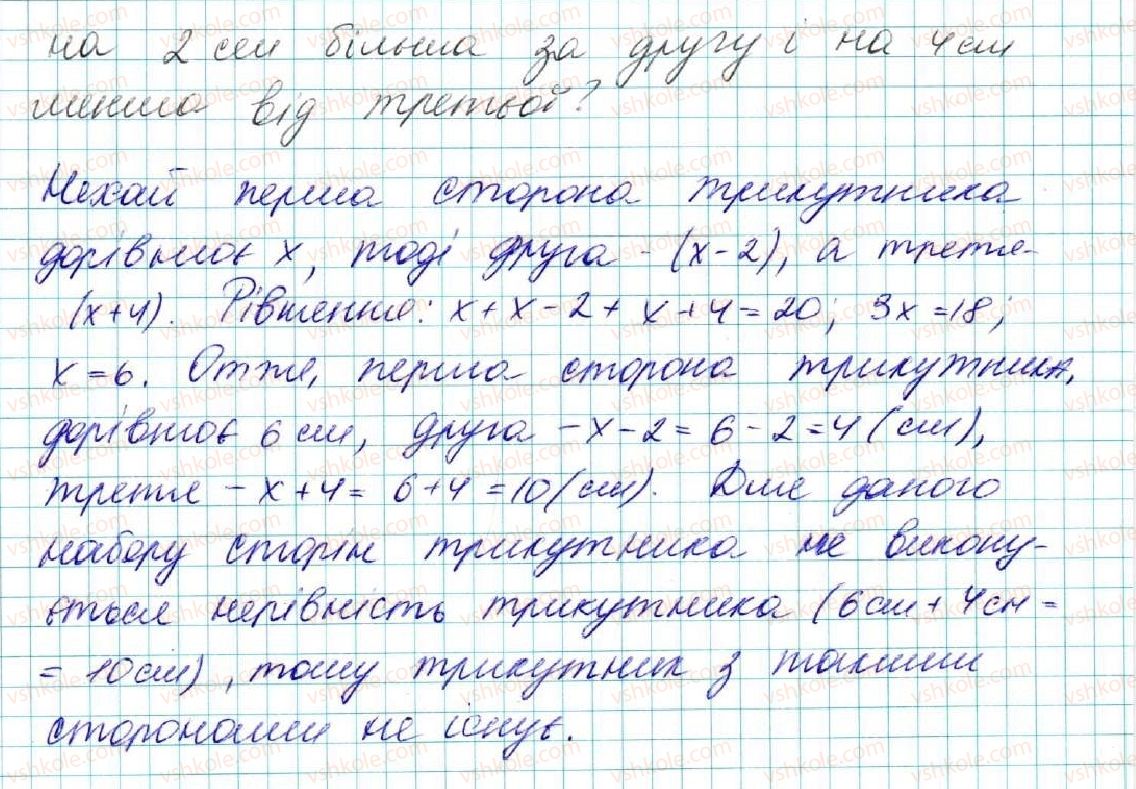 на 2 см більша за другу і на 4 см
менша від третьої?
Нехай перша сторона трикутника
дорівнює x, тоді друга - (x-2), а третя-
(x+4). Рівняння: x+x-2+x+4=20; 3x=18;
x=6. Отже, перша сторона трикутника,
дорівнює 6 см, друга - x-2=6-2=4 (см),
третя - x+4= 6+4=10(см). Для даного
набору сторін трикутника не викону-
ється нерівність трикутника (6см+4см=
=10см), тому трикутник з такими
сторонами не існує.